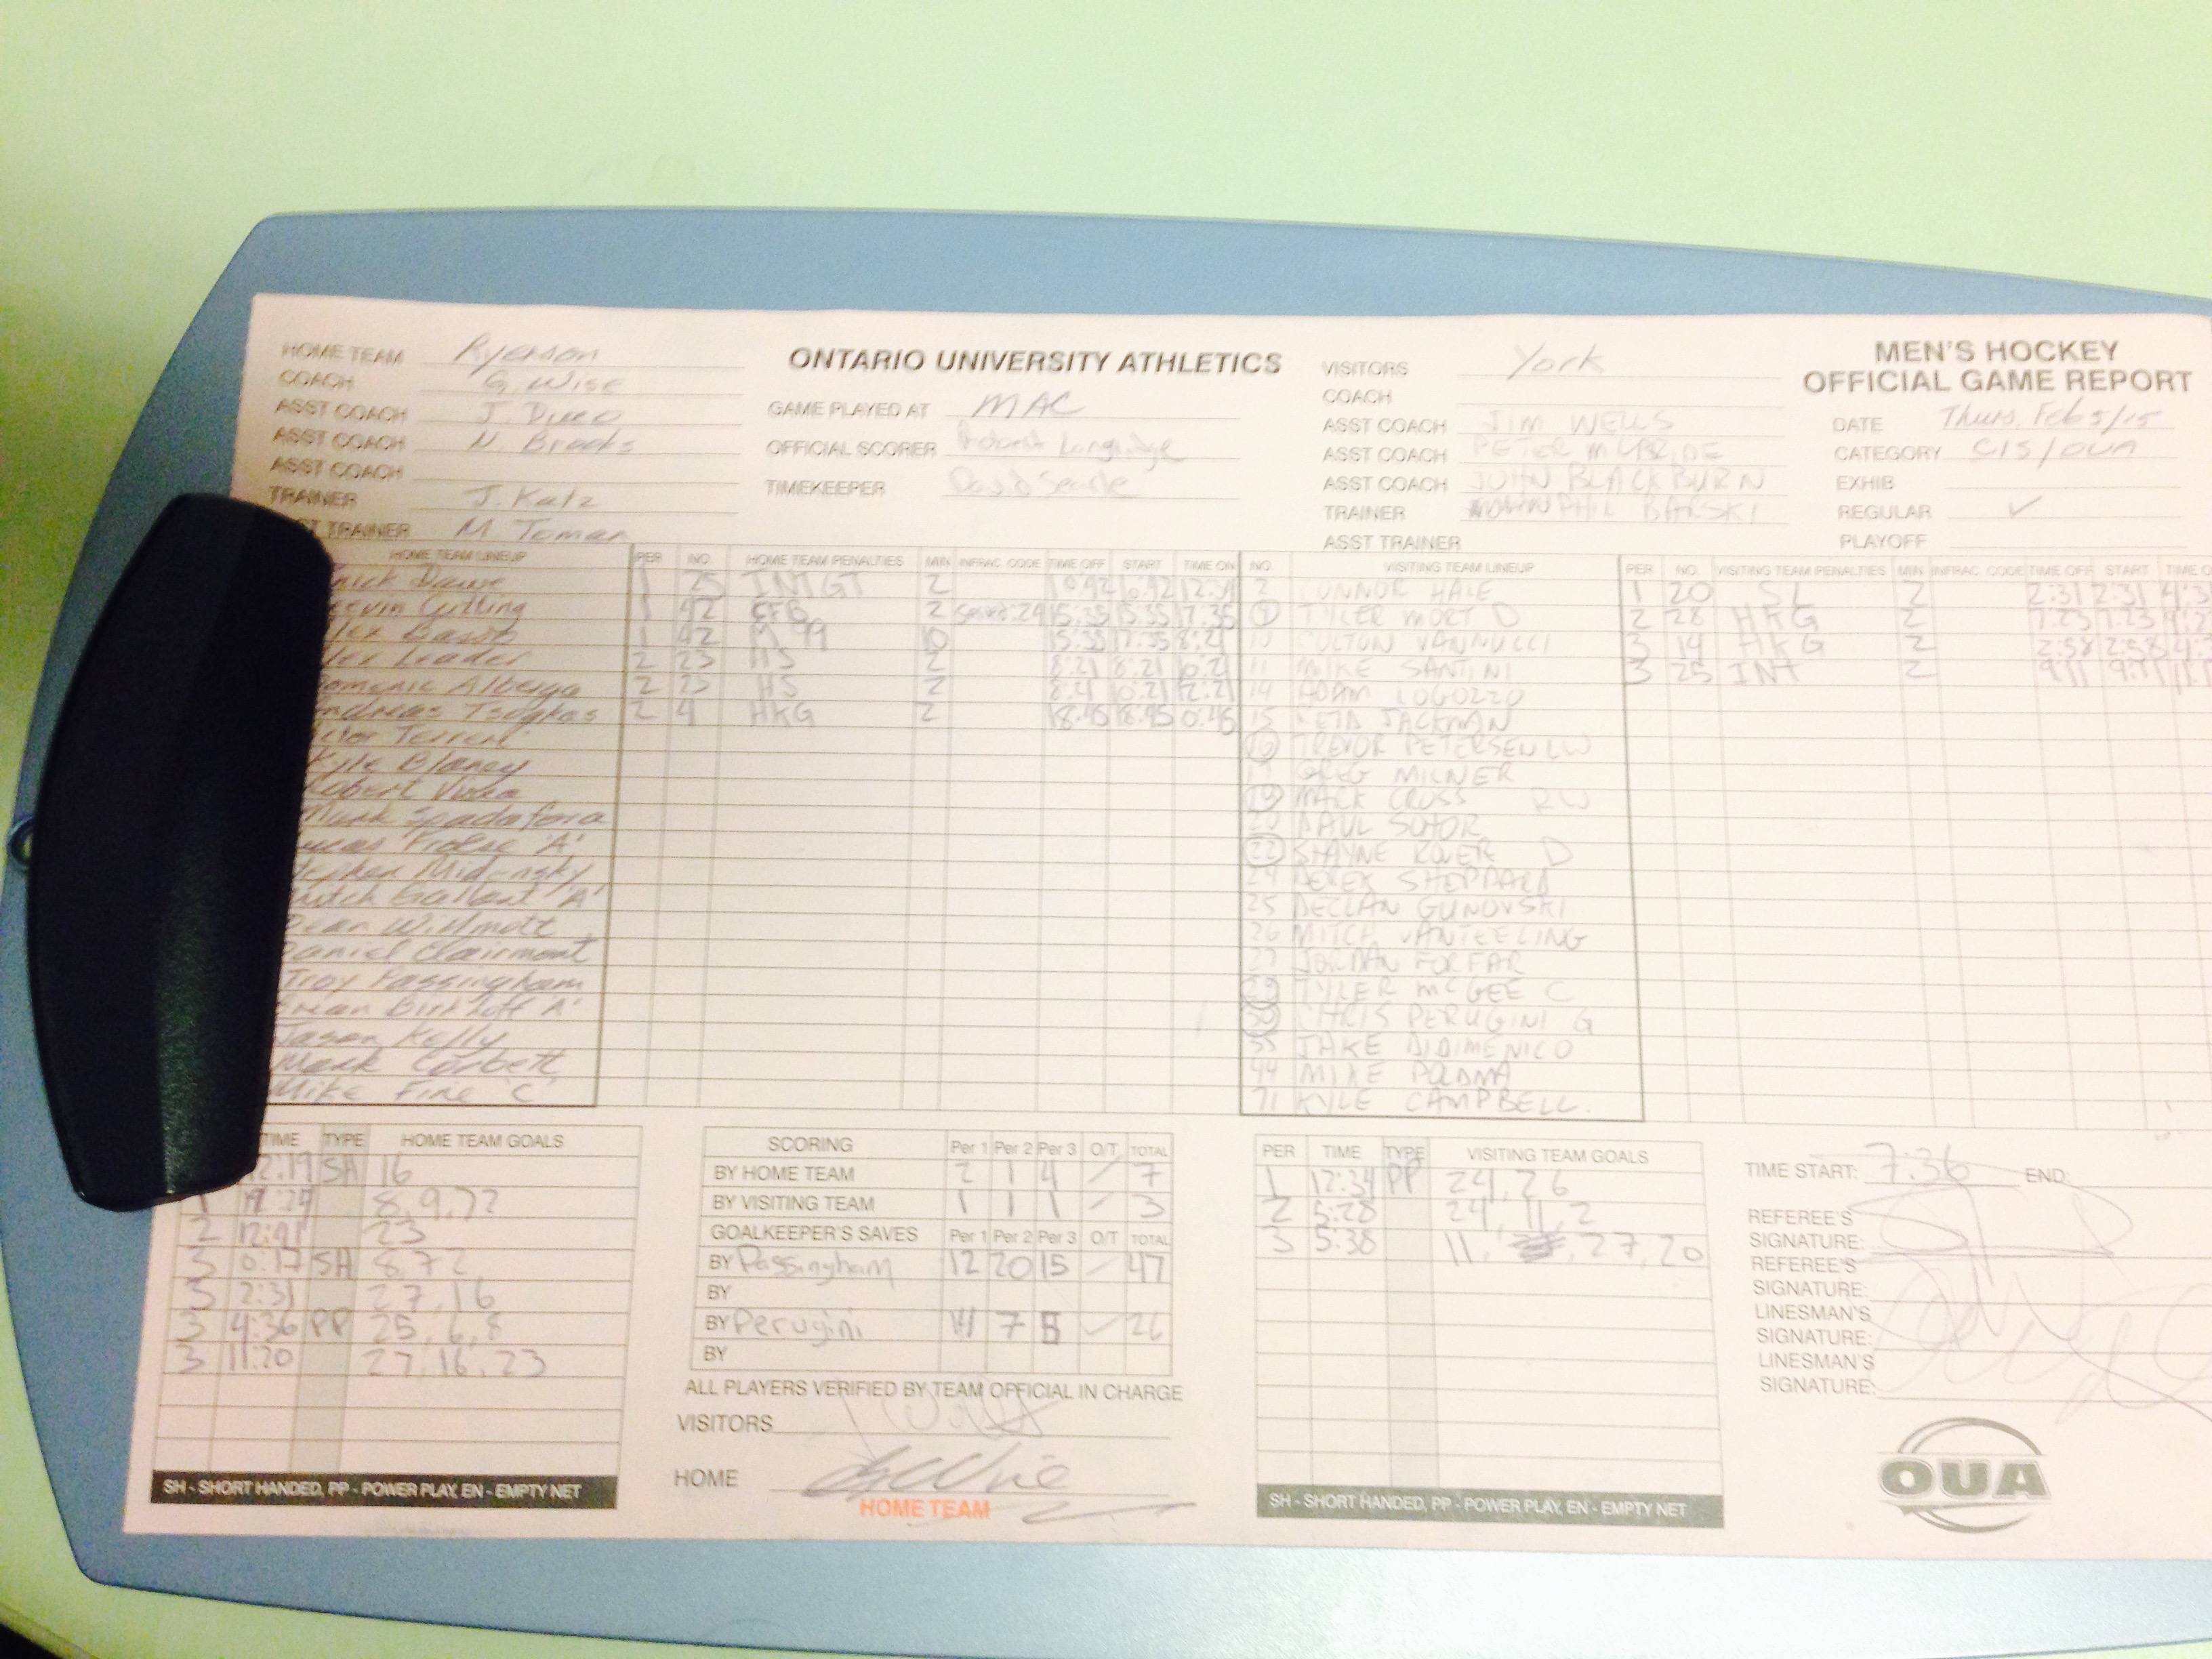 HOME TEAM Ryerson
COACH G. Wise
ASST COACH J. Duco
ASST COACH N. Brooks
ASST COACH
TRAINER J. Katz
TRAINER M Toman
ONTARIO UNIVERSITY ATHLETICS
GAME PLAYED AT MAC
OFFICIAL SCORER
TIMEKEEPER David Searle
VISITORS York
COACH
ASST COACH JIM WELLS
ASST COACH PETER MCBRIDE
ASST COACH JOHN BLACKBURN
TRAINER PHIL BARSKI
ASST TRAINER
MEN'S HOCKEY
OFFICIAL GAME REPORT
DATE Thurs, Feb 5/15
CATEGORY CIS/OUA
EXHIB
REGULAR ✓
PLAYOFF
HOME TEAM LINEUP
Cutling
Leader
Domenic Alberga
Andreas Tsogkas
Kyle Blaney
Mark Spadafora
'A'
Gallant 'A'
Dean Willmott
Daniel Clairmont
Troy Passingham
Brian Birkhoff 'A'
Jason Kelly
Mark Corbett
Mike Fine 'C'
PER NO. HOME TEAM PENALTIES MIN INFRAC. CODE TIME OFF START TIME ON
1 25 INTGT 2 10:42 10:42 12:34
1 42 CFB 2 15:35 15:35 17:35
1 42 M 99 10 15:35 17:35 8:21
2 23 HS 2 8:21 8:21 10:21
2 25 HS 2 8:21 10:21 12:21
2 4 HKG 2 18:45 18:45 0:45
NO. VISITING TEAM LINEUP
2 CONNOR HALE
TYLER MORT D
COLTON VANNUCCI
11 MIKE SANTINI
14 ADAM LOGOZZO
15 JACKMAN
16 TREVOR PETERSEN LW
17 GREG MILNER
19 MACK CROSS RW
20 PAUL
22 SHAYNE ROVER D
24 DEREK SHEPPARD
25 DECLAN GUNOVSKI
26 MITCH VANTEELING
27 JORDAN FORFAR
29 TYLER MCGEE C
30 CHRIS PERUGINI G
JAKE DIDIMENICO
44 MIKE POLDMA
71 KYLE CAMPBELL.
PER NO. VISITING TEAM PENALTIES MIN INFRAC. CODE TIME OFF START TIME O
1 20 SL 2 2:31 2:31
2 28 HKG 2 7:23 7:23
3 19 HKG 2 2:58 2:58
3 25 INT 2 9:11 9:11
TIME TYPE HOME TEAM GOALS
12:19 SH 16
1 8,9,72
2 12:41 23
3 0:17 SH 8,72
3 2:31 27,16
3 4:36 PP 25,6,8
3 11:20 27,16,23
SH - SHORT HANDED, PP - POWER PLAY, EN - EMPTY NET
SCORING Per 1 Per 2 Per 3 O/T TOTAL
BY HOME TEAM 2 1 4 / 7
BY VISITING TEAM 1 1 1 / 3
GOALKEEPER'S SAVES Per 1 Per 2 Per 3 O/T TOTAL
BY Passingham 12 20 15 / 47
BY
BY Perugini 7 26
BY
ALL PLAYERS VERIFIED BY TEAM OFFICIAL IN CHARGE
VISITORS
HOME
HOME TEAM
PER TIME TYPE VISITING TEAM GOALS
1 12:34 PP 24,26
2 5:28 24,11,2
3 5:38 11, 27, 20
SH - SHORT HANDED, PP - POWER PLAY, EN - EMPTY NET
TIME START: 7:36 END:
REFEREE'S
SIGNATURE:
REFEREE'S
SIGNATURE:
LINESMAN'S
SIGNATURE:
LINESMAN'S
SIGNATURE:
OUA